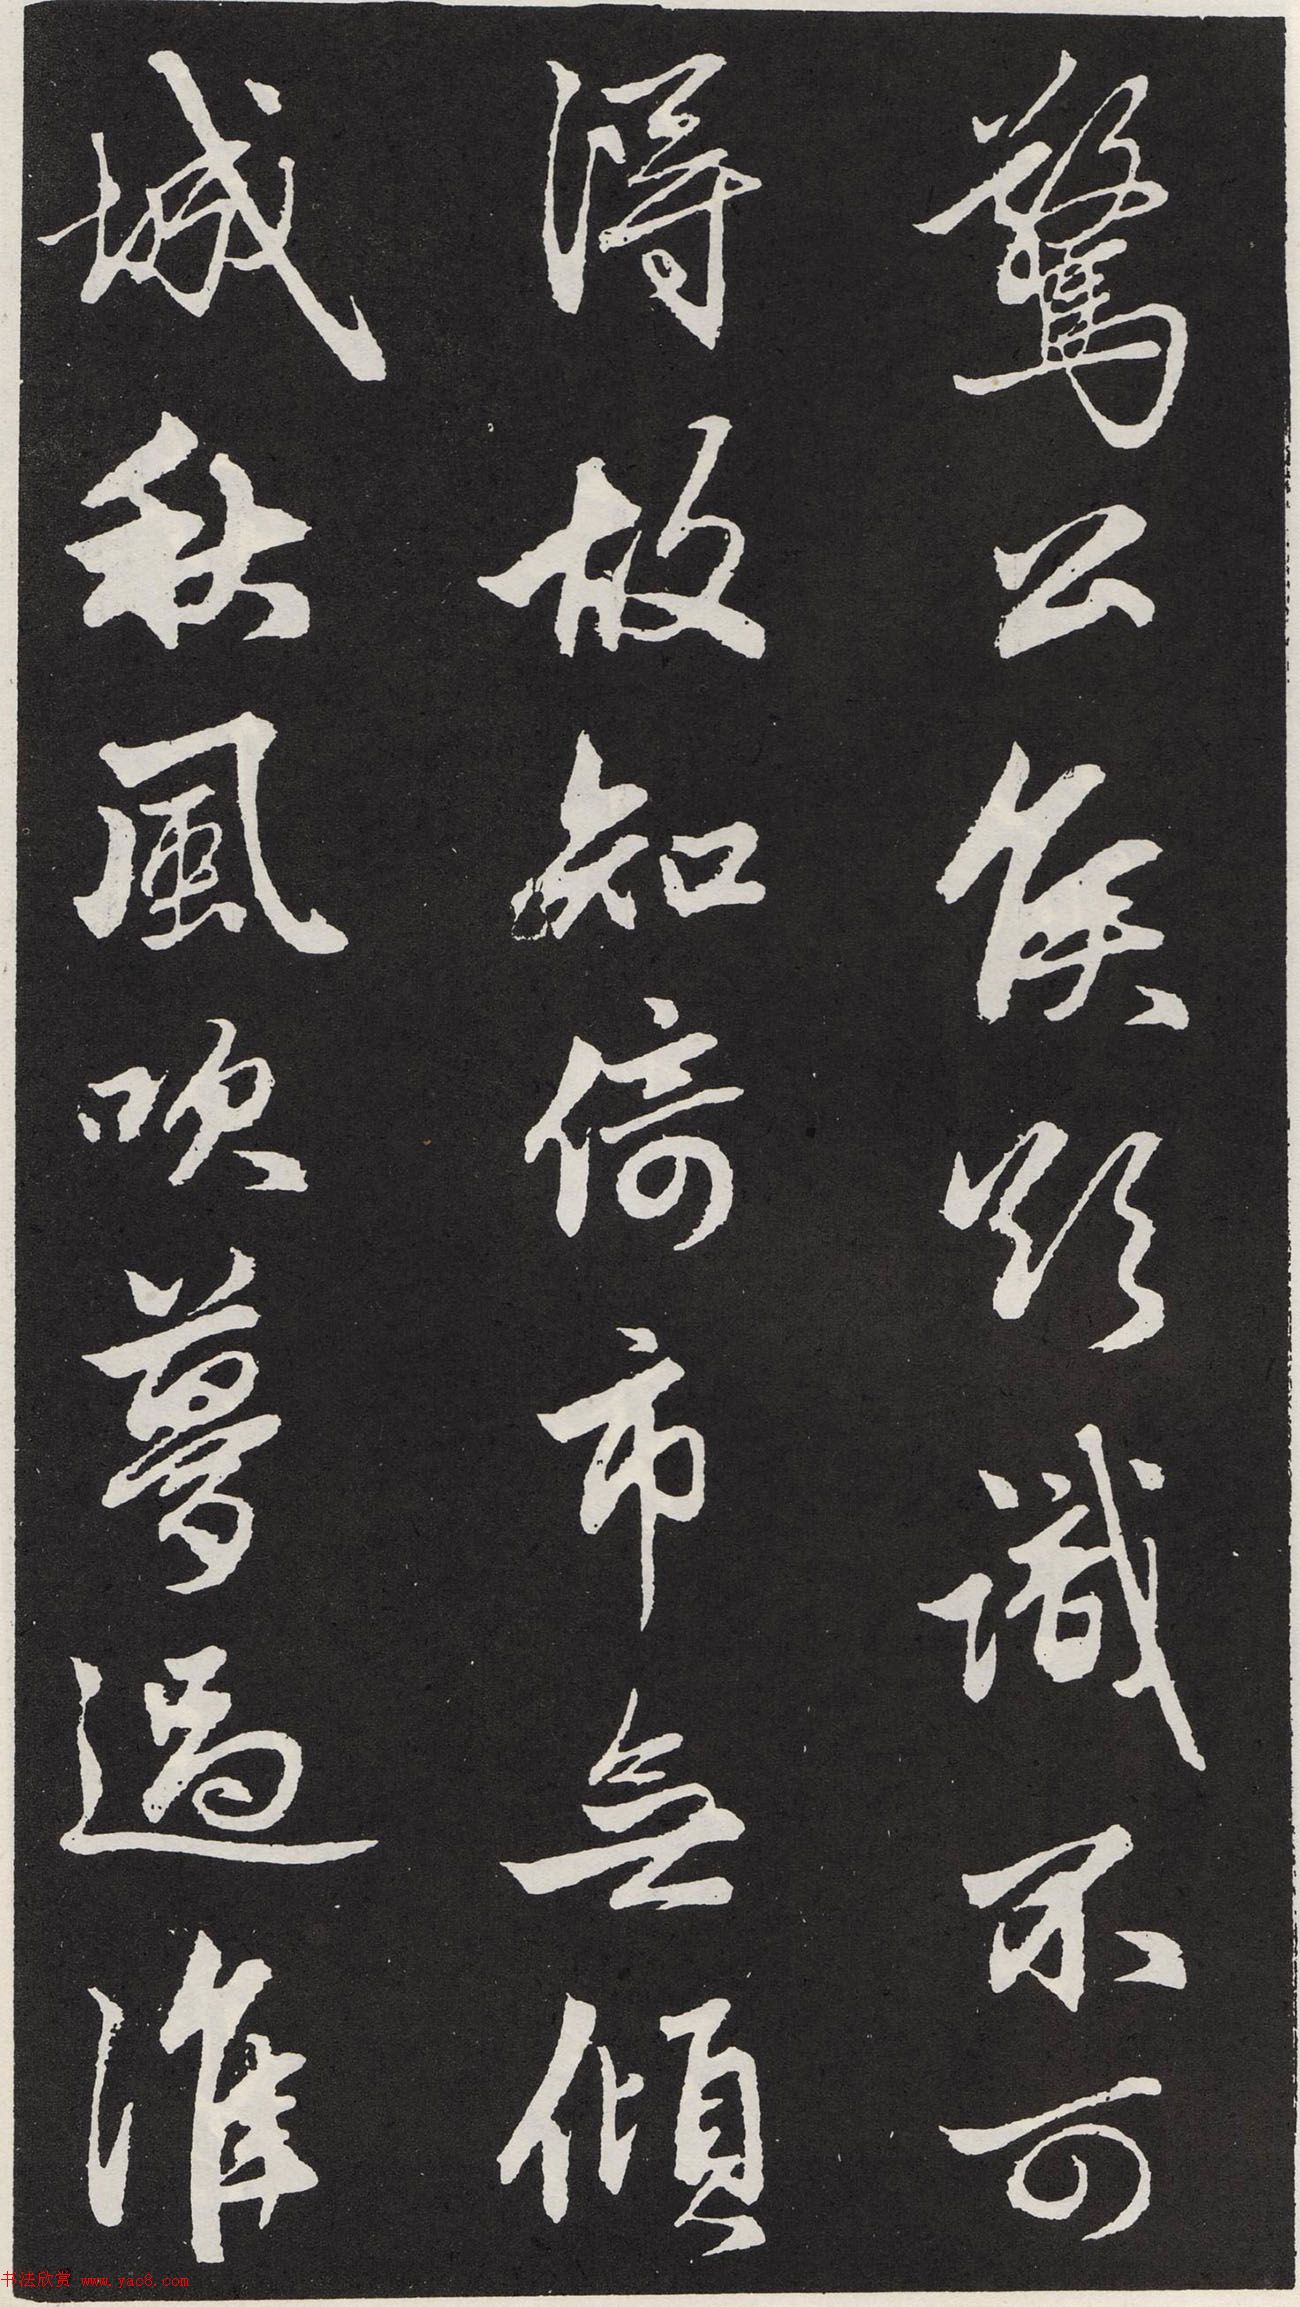 驚公侯欲識不可
得故知倚市無傾
城秋風吹夢過淮
书法欣赏 www.yac8.com